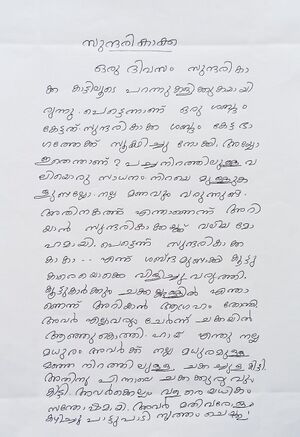 സുന്ദരികാക്ക
ഒരു ദിവസം സുന്ദരികാ
ക്ക കാട്ടിലൂടെ പറന്നു കളിക്കുകയായി
രുന്നു. പെട്ടെന്നാണ് ഒരു ശബ്ദം
കേട്ടത് സുന്ദരികാക്ക ശബ്ദം കേട്ട ഭാ
ഗത്തേക്ക് സൂക്ഷിച്ചു നോക്കി. അയ്യോ
ഇതെന്താണ്? പച്ചനിറത്തിലുള്ള വ
ലിയൊരു സാധനം നിറയെ മുള്ളുക
ളുണ്ടല്ലോ. നല്ല മണവും വരുന്നുണ്ട്.
അതിനകത്ത് എന്താണെന്ന് അറി
യാൻ സുന്ദരികാക്കയ്ക്ക് വലിയ മോ
ഹമായി. പെട്ടെന്ന് സുന്ദരികാക്ക
കാ കാ.. എന്ന് ശബ്ദമുണ്ടാക്കി കൂട്ടു
കാരെയൊക്കെ വിളിച്ചു വരുത്തി.
കൂട്ടുകാർക്കും ചക്കയ്ക്കുള്ളിൽ എന്താ
ണെന്ന് അറിയാൻ ആഗ്രഹം തോന്നി
അവർ എല്ലാവരും ചേർന്ന് ചക്കയിൽ
ആഞ്ഞുകൊത്തി. ഹായ് എന്തു നല്ല
മധുരം അവർക്ക് നല്ല മധുരമുള്ള
മഞ്ഞ നിറത്തിലുള്ള ചക്കച്ചുള കിട്ടി.
അതിനു പിന്നാലെ ചക്കക്കുരുവും
കിട്ടി. അവർക്കെല്ലാം വളരെയധികം
സന്തോഷമായി. അവർ മതിവരുവോളം
കഴിച്ചു പാട്ടുപാടി നൃത്തം ചെയ്തു!